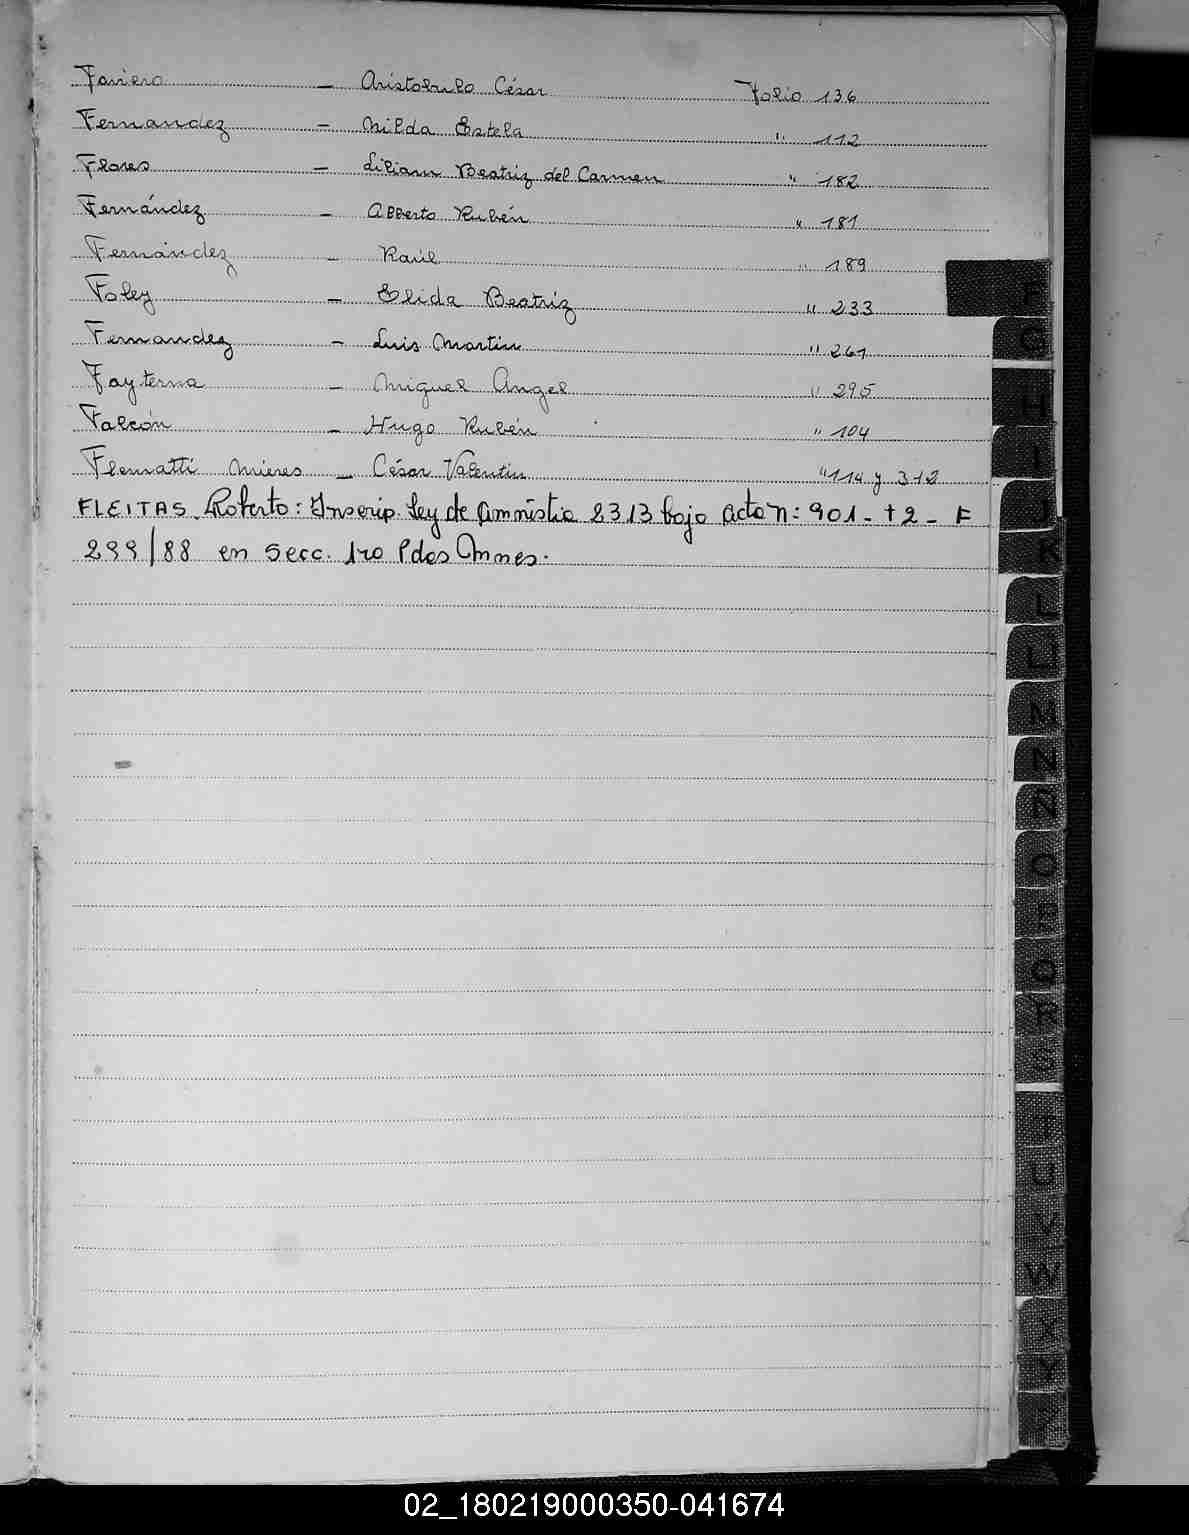 Faviero — Aristobulo César Folio 136
Fernandez — Nilda Estela " 112
Flores — Liliam Beatriz del Carmen " 182
Fernández — Alberto Rubén " 181
Fernández — Raúl " 189
Foley — Elida Beatriz " 233
Fernandez — Luis Martin " 261
Fayterna — Miguel Angel " 295
Falcón — Hugo Rubén " 104
Flematti Mieres — César Valentin " 114 y 312
FLEITAS Roberto: Inscrip. Ley de Amnistia 2313 bajo acta n: 901 - t 2 - F
299/88 en Secc. 1ra Pdas
F
G
H
I
J
K
L
LL
M
N
Ñ
O
P
Q
R
S
T
U
V
W
X
Y
Z
02_180219000350-041674